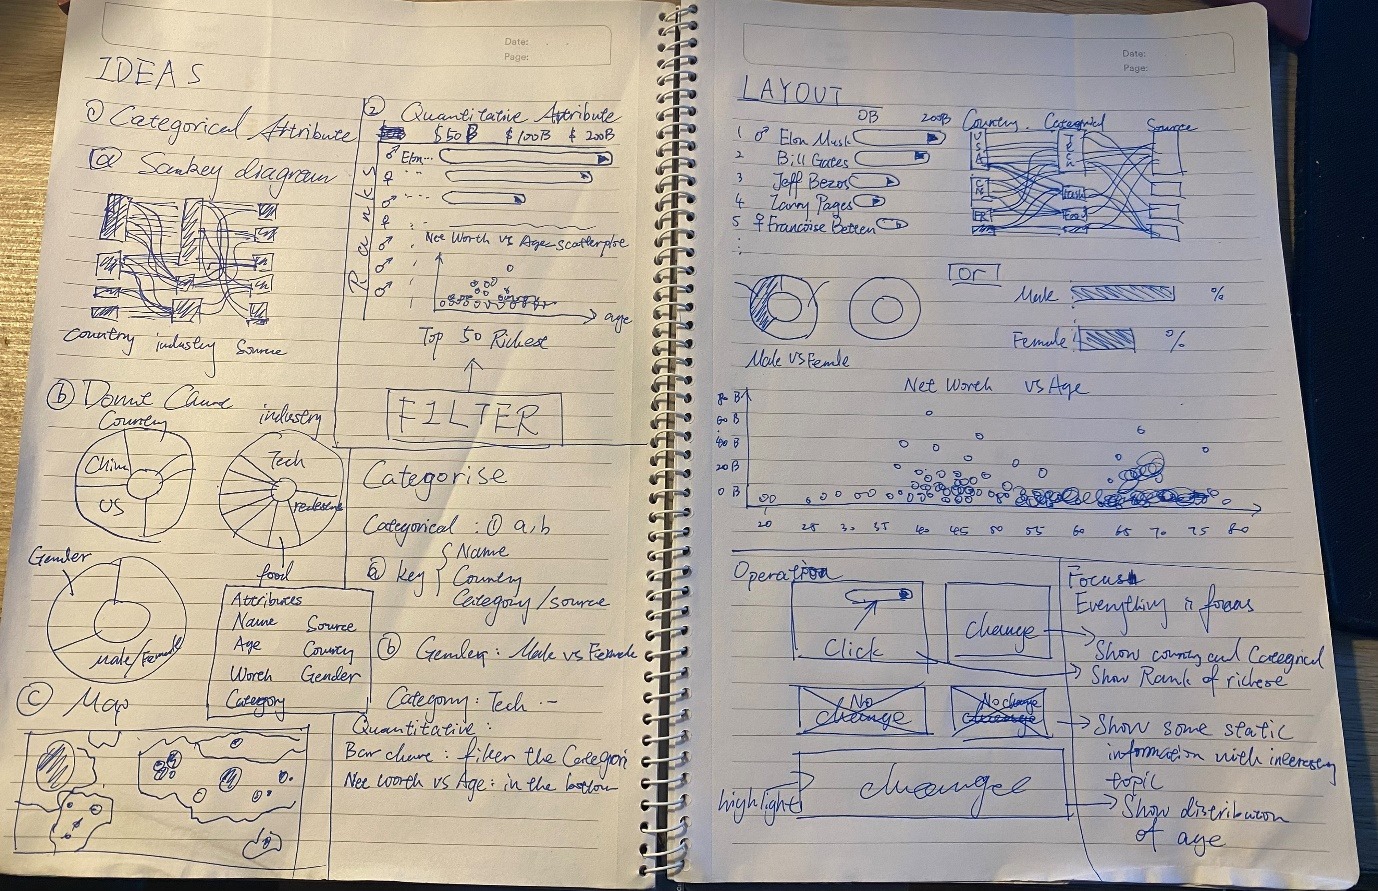 Date:
Page:
IDEAS
① Categorical Attribute
ⓐ Sankey diagram
Country industry Source
ⓑ Donut
Country
industry
China
US
Tech
food
Gender
Male/Female
Attributes
Name Source
Age Country
Worth Gender
Category
ⓒ Map
② Quantitative Attribute
$50B $100B $200B
Ranks
♂ Elon...
♀
♂
♀
♂
♂
♂
Net Worth vs Age scatterplot
age
Top 50 Richest
FILTER
Categorise
Categorical : ① a,b
ⓐ key { Name
Country
Category/source
ⓑ Gender: Male vs Female
Category: Tech
Quantitative:
Bar chart: filter the Categori
Net Worth vs Age: in the bottom
Date:
Page:
LAYOUT
0B 200B
1 ♂ Elon Musk
2 Bill Gates
3 Jeff Bezos
4 Larry Pages
5 ♀ Francoise Betten
Country Categorical Source
USA
or
Male %
Female %
Male VS Female
Net Worth vs Age
80 B
60 B
40 B
20 B
0 B
20 25 30 35 40 45 50 55 60 65 70 75 80
Operation
Click
change
No change
No change
highlight
change
Focus
Everything is focus
Show country and Categrical
Show Rank of richest
Show some static
information with interesting
topic
Show distribution
of age